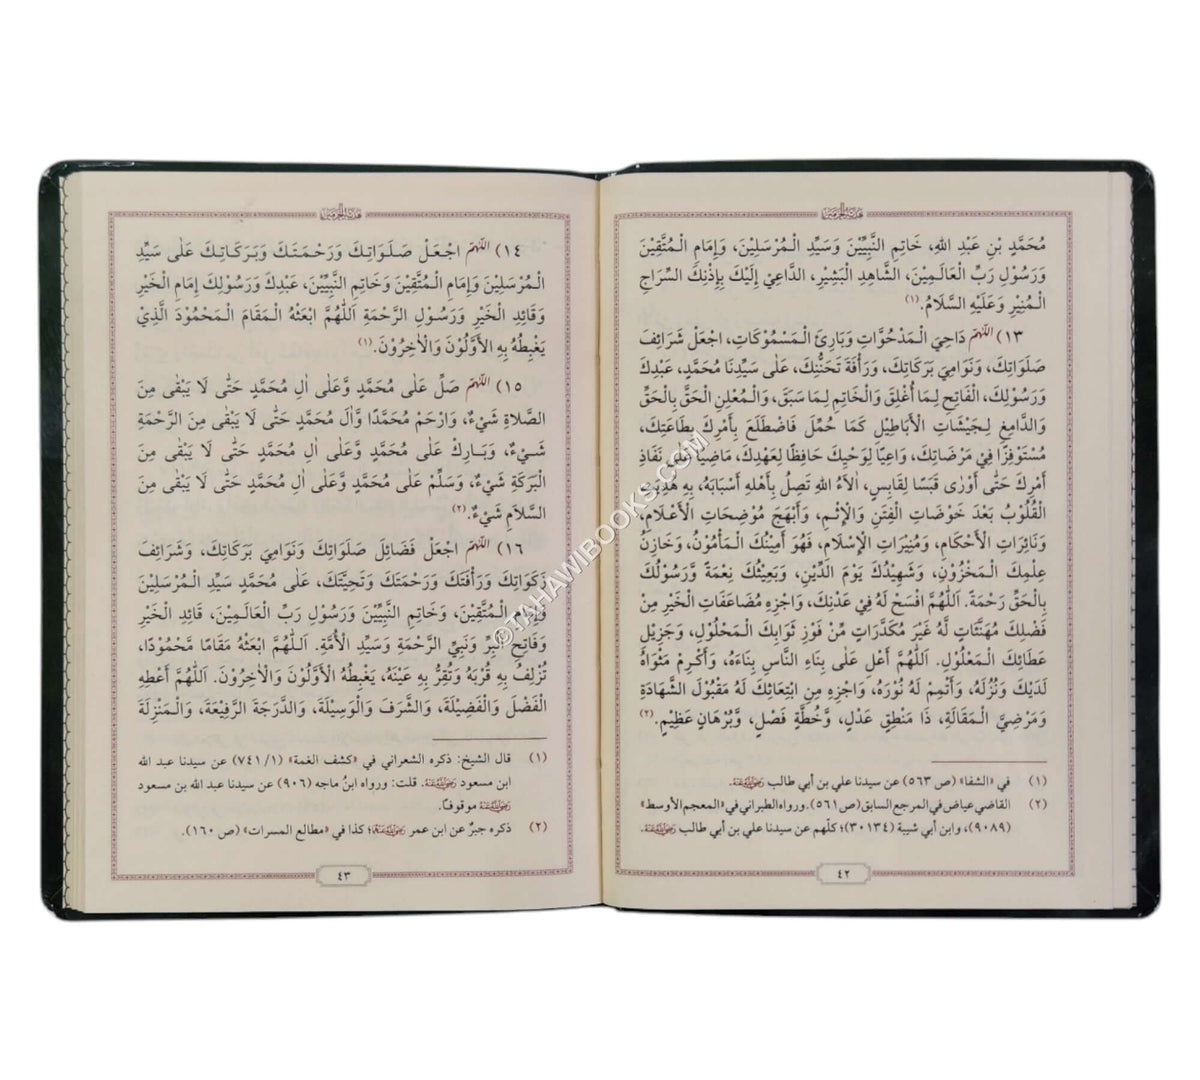 هدية الحرمين
مُحَمَّدِ بْنِ عَبْدِ اللهِ، خَاتِمِ النَّبِيِّيْنَ وَسَيِّدِ الْمُرْسَلِيْنَ، وَإِمَامِ الْمُتَّقِيْنَ
وَرَسُوْلِ رَبِّ الْعَالَمِيْنَ، الشَّاهِدِ الْبَشِيْرِ، الدَّاعِيْ إِلَيْكَ بِإِذْنِكَ السِّرَاجِ
الْمُنِيْرِ وَعَلَيْهِ السَّلَامُ.(١)
١٣) اللّٰهُمَّ دَاحِيَ الْمَدْحُوَّاتِ وَبَارِئَ الْمَسْمُوْكَاتِ، اجْعَلْ شَرَائِفَ
صَلَوَاتِكَ، وَنَوَامِيَ بَرَكَاتِكَ، وَرَأْفَةَ تَحَنُّنِكَ، عَلٰى سَيِّدِنَا مُحَمَّدٍ، عَبْدِكَ
وَرَسُوْلِكَ، الْفَاتِحِ لِمَا أُغْلِقَ وَالْخَاتِمِ لِمَا سَبَقَ، وَالْمُعْلِنِ الْحَقَّ بِالْحَقِّ
وَالدَّامِغِ لِجَيْشَاتِ الْأَبَاطِيْلِ كَمَا حُمِّلَ فَاضْطَلَعَ بِأَمْرِكَ بِطَاعَتِكَ،
مُسْتَوْفِزًا فِيْ مَرْضَاتِكَ، وَاعِيًا لِوَحْيِكَ حَافِظًا لِعَهْدِكَ، مَاضِيًا عَلٰى نَفَاذِ
أَمْرِكَ حَتّٰى أَوْرٰى قَبَسًا لِقَابِسٍ، اٰلَاءُ اللهِ تَصِلُ بِأَهْلِهِ أَسْبَابَهُ، بِهِ هُدِيَتِ
الْقُلُوْبُ بَعْدَ خَوْضَاتِ الْفِتَنِ وَالْإِثْمِ، وَأَبْهَجَ مُوْضِحَاتِ الْأَعْلَامِ،
وَنَائِرَاتِ الْأَحْكَامِ، وَمُنِيْرَاتِ الْإِسْلَامِ، فَهُوَ أَمِيْنُكَ الْمَأْمُوْنُ، وَخَازِنُ
عِلْمِكَ الْمَخْزُوْنِ، وَشَهِيْدُكَ يَوْمَ الدِّيْنِ، وَبَعِيْثُكَ نِعْمَةً وَّرَسُوْلُكَ
بِالْحَقِّ رَحْمَةً. اَللّٰهُمَّ افْسَحْ لَهُ فِيْ عَدْنِكَ، وَاجْزِهِ مُضَاعَفَاتِ الْخَيْرِ مِنْ
فَضْلِكَ مُهَنَّئَاتٍ لَّهُ غَيْرَ مُكَدَّرَاتٍ مِّنْ فَوْزِ ثَوَابِكَ الْمَحْلُوْلِ، وَجَزِيْلِ
عَطَائِكَ الْمَعْلُوْلِ. اَللّٰهُمَّ أَعْلِ عَلٰى بِنَاءِ النَّاسِ بِنَاءَهُ، وَأَكْرِمْ مَثْوَاهُ
لَدَيْكَ وَنُزُلَهُ، وَأَتْمِمْ لَهُ نُوْرَهُ، وَاجْزِهِ مِنِ ابْتِعَاثِكَ لَهُ مَقْبُوْلَ الشَّهَادَةِ
وَمَرْضِيَّ الْمَقَالَةِ، ذَا مَنْطِقٍ عَدْلٍ، وَّخُطَّةٍ فَصْلٍ، وَّبُرْهَانٍ عَظِيْمٍ.(٢)
(١) في «الشفا» (ص ٥٦٣) عن سيدنا علي بن أبي طالب رضي الله عنه.
(٢) القاضي عياض في المرجع السابق (ص ٥٦١). ورواه الطبراني في «المعجم الأوسط»
(٩٠٨٩)، وابن أبي شيبة (٣٠١٣٤)؛ كلّهم عن سيدنا علي بن أبي طالب رضي الله عنه.
٤٢
هدية الحرمين
١٤) اللّٰهُمَّ اجْعَلْ صَلَوَاتِكَ وَرَحْمَتَكَ وَبَرَكَاتِكَ عَلٰى سَيِّدِ
الْمُرْسَلِيْنَ وَإِمَامِ الْمُتَّقِيْنَ وَخَاتِمِ النَّبِيِّيْنَ، عَبْدِكَ وَرَسُوْلِكَ إِمَامِ الْخَيْرِ
وَقَائِدِ الْخَيْرِ وَرَسُوْلِ الرَّحْمَةِ اَللّٰهُمَّ ابْعَثْهُ الْمَقَامَ الْمَحْمُوْدَ الَّذِيْ
يَغْبِطُهُ بِهِ الْأَوَّلُوْنَ وَالْاٰخِرُوْنَ.(١)
١٥) اللّٰهُمَّ صَلِّ عَلٰى مُحَمَّدٍ وَّعَلٰى اٰلِ مُحَمَّدٍ حَتّٰى لَا يَبْقٰى مِنَ
الصَّلَاةِ شَيْءٌ، وَارْحَمْ مُحَمَّدًا وَّاٰلَ مُحَمَّدٍ حَتّٰى لَا يَبْقٰى مِنَ الرَّحْمَةِ
شَيْءٌ، وَبَارِكْ عَلٰى مُحَمَّدٍ وَّعَلٰى اٰلِ مُحَمَّدٍ حَتّٰى لَا يَبْقٰى مِنَ
الْبَرَكَةِ شَيْءٌ، وَسَلِّمْ عَلٰى مُحَمَّدٍ وَّعَلٰى اٰلِ مُحَمَّدٍ حَتّٰى لَا يَبْقٰى مِنَ
السَّلَامِ شَيْءٌ.(٢)
١٦) اللّٰهُمَّ اجْعَلْ فَضَائِلَ صَلَوَاتِكَ وَنَوَامِيَ بَرَكَاتِكَ، وَشَرَائِفَ
زَكَوَاتِكَ وَرَأْفَتَكَ وَرَحْمَتَكَ وَتَحِيَّتَكَ، عَلٰى مُحَمَّدٍ سَيِّدِ الْمُرْسَلِيْنَ
وَإِمَامِ الْمُتَّقِيْنَ، وَخَاتِمِ النَّبِيِّيْنَ وَرَسُوْلِ رَبِّ الْعَالَمِيْنَ، قَائِدِ الْخَيْرِ
وَفَاتِحِ الْبِرِّ وَنَبِيِّ الرَّحْمَةِ وَسَيِّدِ الْأُمَّةِ. اَللّٰهُمَّ ابْعَثْهُ مَقَامًا مَّحْمُوْدًا،
تُزْلِفُ بِهِ قُرْبَهُ وَتُقِرُّ بِهِ عَيْنَهُ، يَغْبِطُهُ الْأَوَّلُوْنَ وَالْاٰخِرُوْنَ. اَللّٰهُمَّ أَعْطِهِ
الْفَضْلَ وَالْفَضِيْلَةَ، وَالشَّرَفَ وَالْوَسِيْلَةَ، وَالدَّرَجَةَ الرَّفِيْعَةَ، وَالْمَنْزِلَةَ
(١) قال الشيخ: ذكره الشعراني في «كشف الغمة» (٧٤١/١) عن سيدنا عبد الله
ابن مسعود رضي الله عنه. قلت: ورواه ابنُ ماجه (٩٠٦) عن سيدنا عبد الله بن مسعود
رضي الله عنه موقوفًا.
(٢) ذكره جبرٌ عن ابن عمر رضي الله عنه؛ كذا في «مطالع المسرات» (ص ١٦٠).
٤٣
©TAHAWIBOOKS.COM